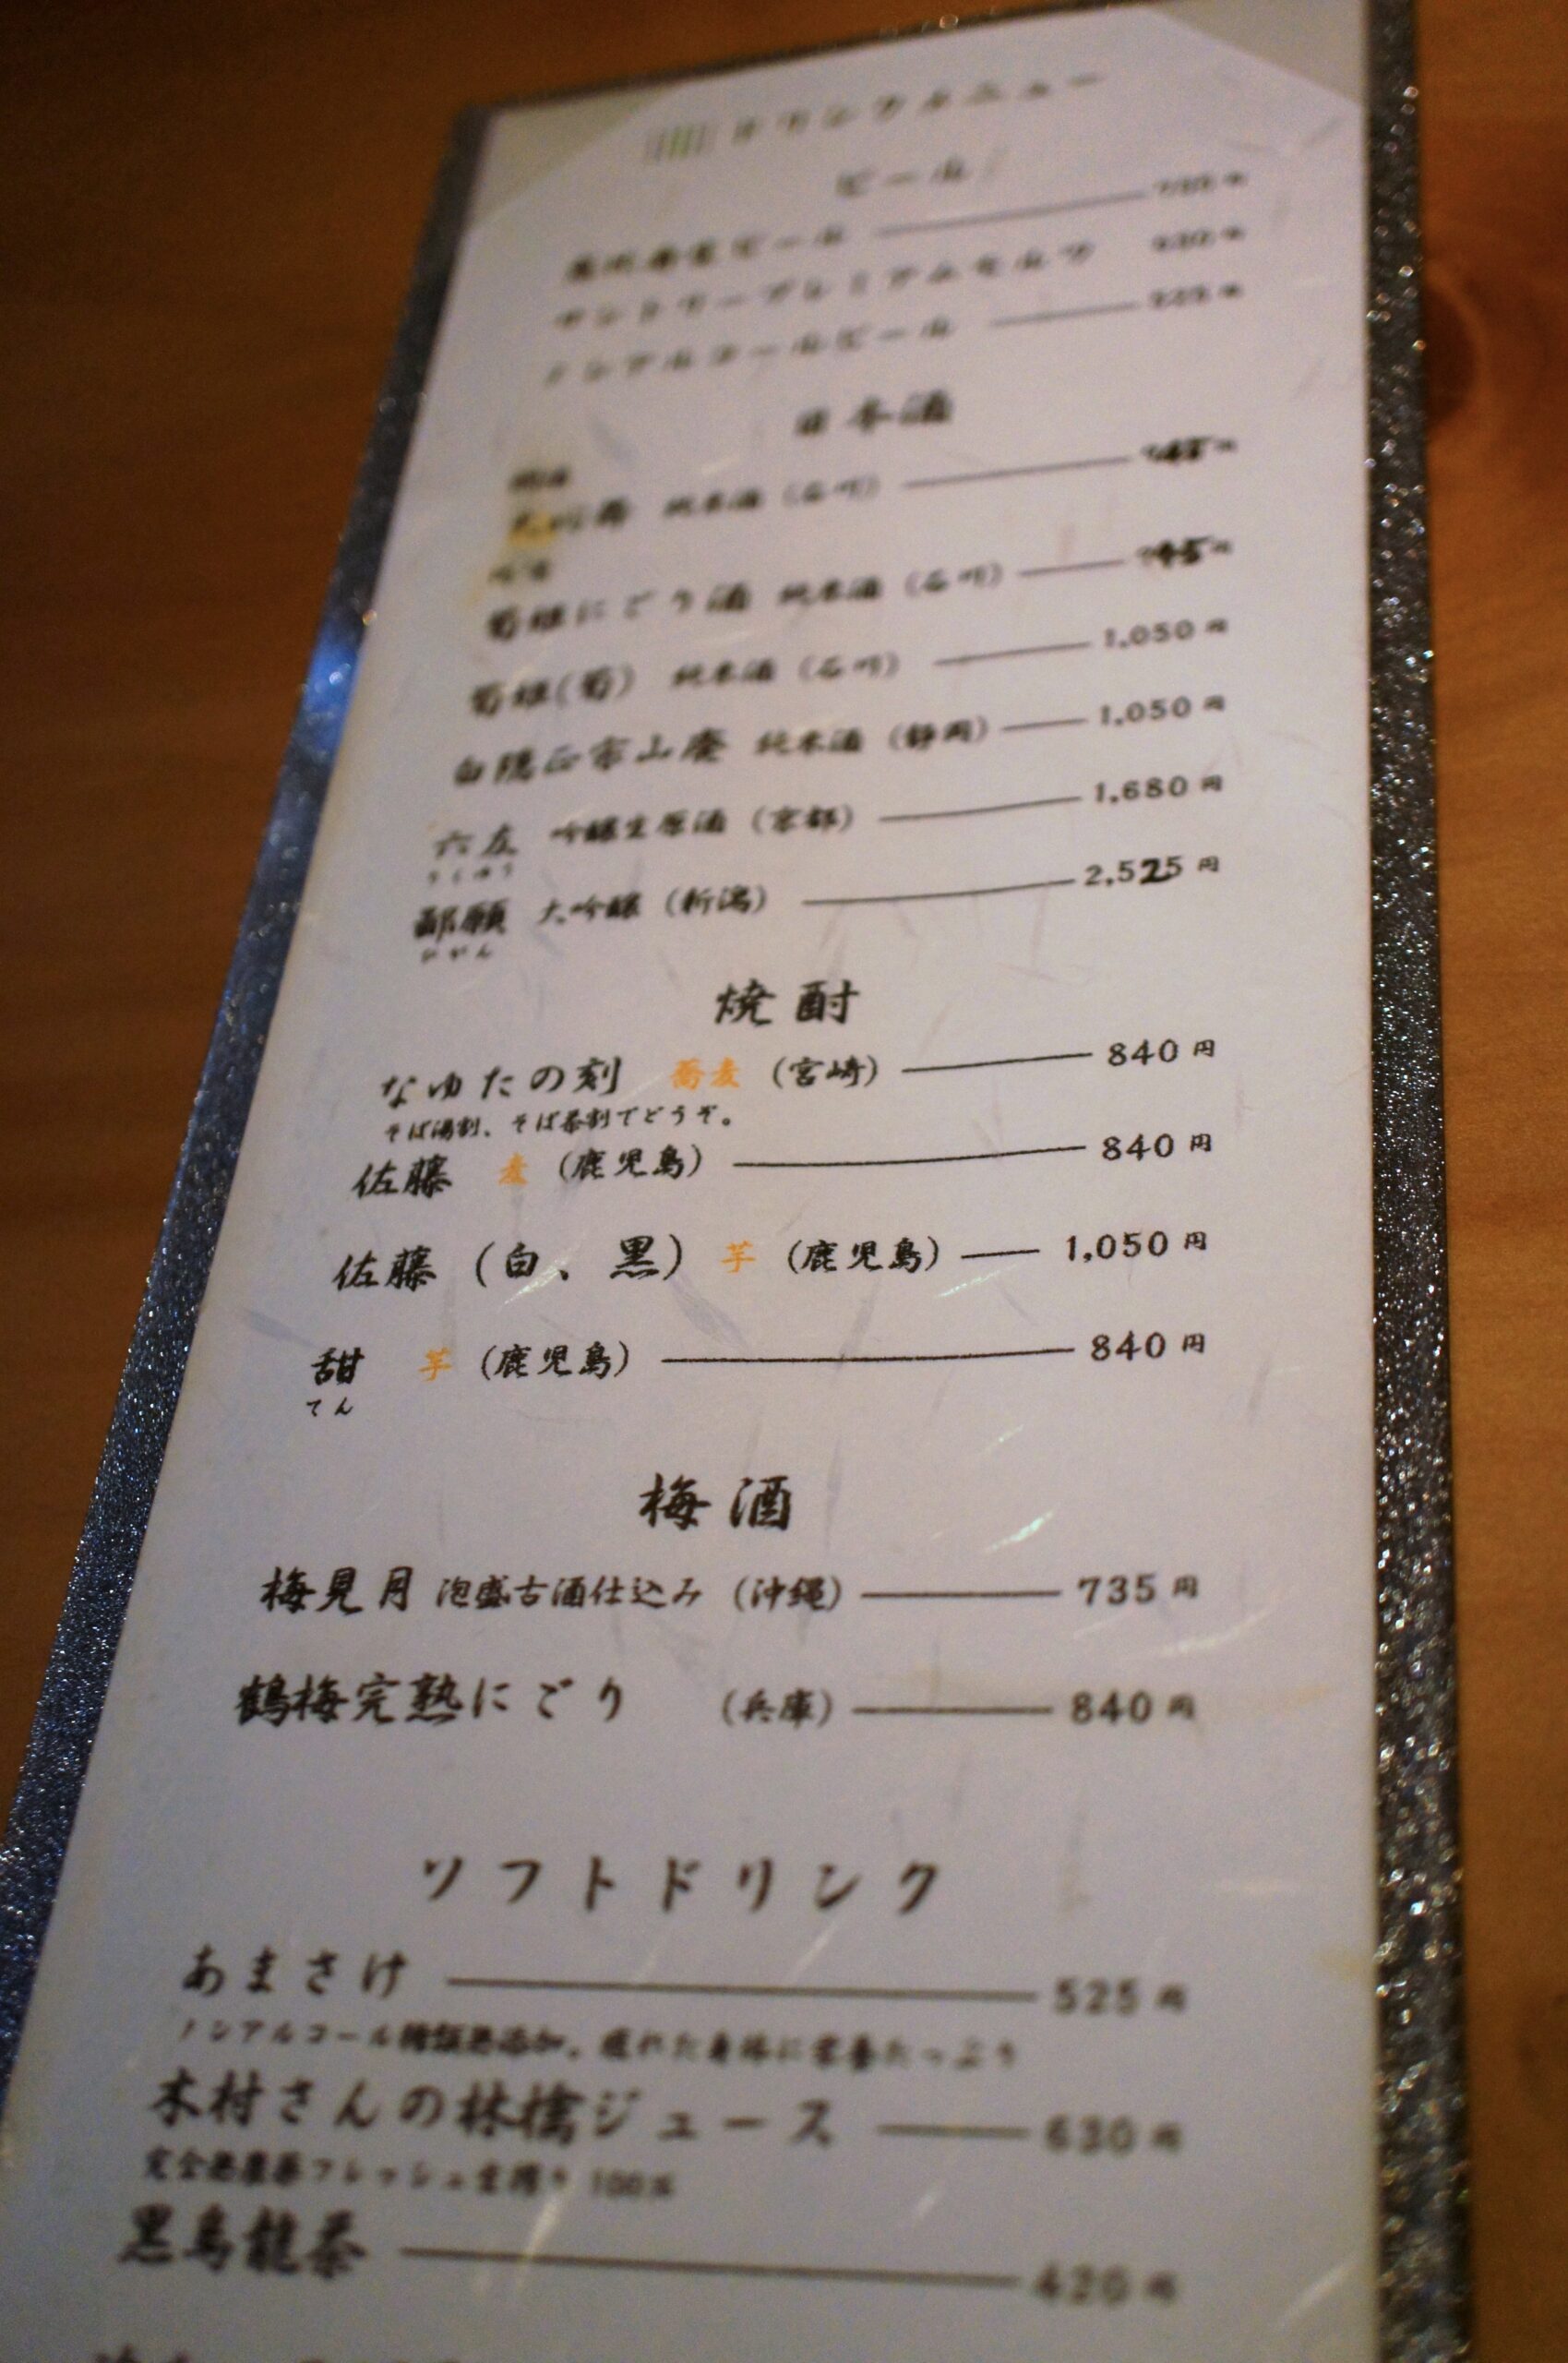 ドリンクメニュー
ビール
ビール
サントリープレミアムモルツ 630円
ノンアルコールビール 525円
日本酒
純米酒 (石川)
菊姫にごり酒 純米酒 (石川)
菊姫(菊) 純米酒 (石川) 1,050円
白隠正宗山廃 純米酒 (静岡) 1,050円
六友 吟醸生原酒 (京都) 1,680円
りくゆう
鄙願 大吟醸 (新潟) 2,525円
ひがん
焼酎
なゆたの刻 蕎麦 (宮崎) 840円
そば湯割、そば茶割でどうぞ。
佐藤 麦 (鹿児島) 840円
佐藤 (白、黒) 芋 (鹿児島) 1,050円
甜 芋 (鹿児島) 840円
てん
梅酒
梅見月 泡盛古酒仕込み (沖縄) 735円
鶴梅完熟にごり (兵庫) 840円
ソフトドリンク
あまさけ 525円
ノンアルコール糖類無添加。疲れた身体に栄養たっぷり
木村さんの林檎ジュース 630円
完全無農薬フレッシュ生搾り 100%
黒烏龍茶 420円